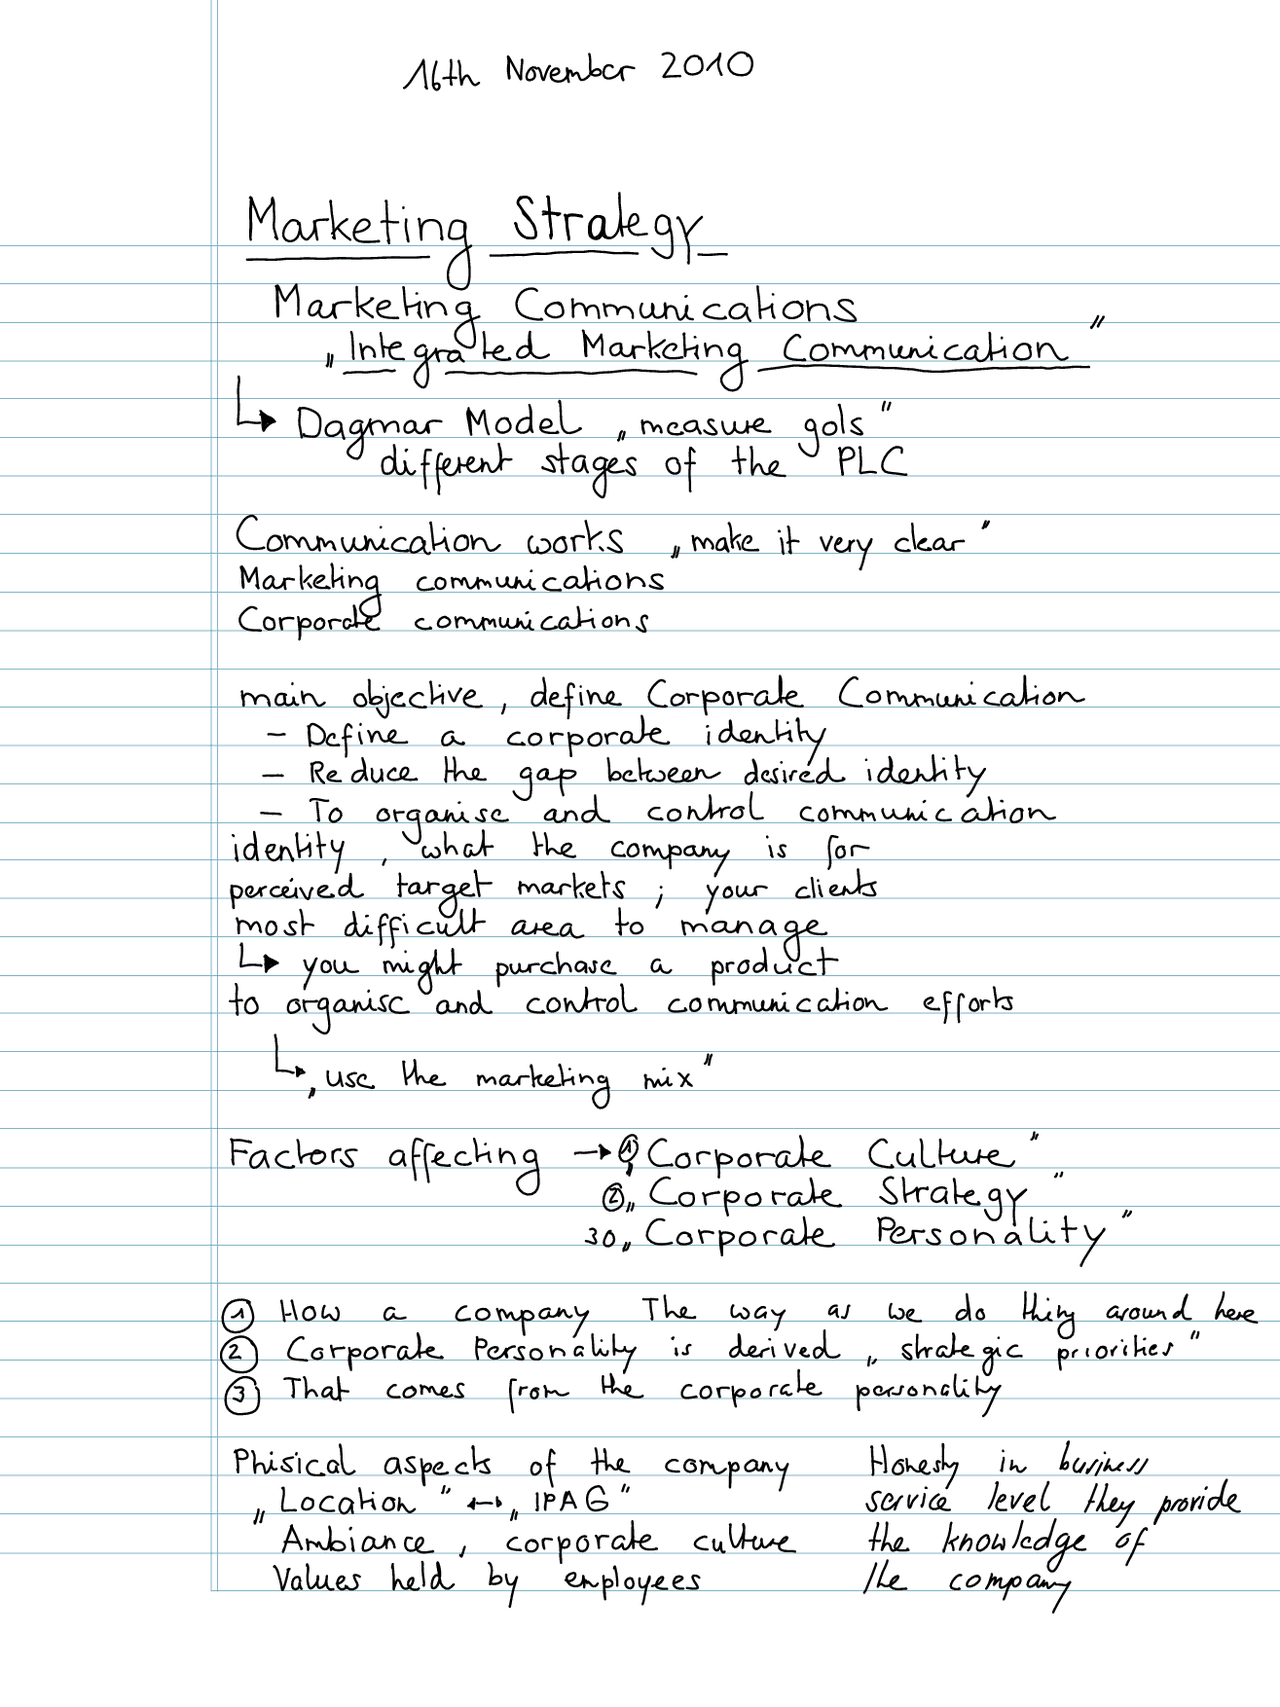 16th November 2010
Marketing Strategy
Marketing Communications
„Integrated Marketing Communication"
↳ Dagmar Model „measure gols"
different stages of the PLC
Communication works „make it very clear"
Marketing communications
Corporate communications
main objective, define Corporate Communication
- Define a corporate identity
- Reduce the gap between desired identity
- To organise and control communication
identity, what the company is for
perceived target markets; your clients
most difficult area to manage
↳ you might purchase a product
to organise and control communication efforts
↳ „use the marketing mix"
Factors affecting → ① „Corporate Culture"
② „Corporate Strategy"
30 „Corporate Personality"
① How a company The way as we do thing around here
② Corporate Personality is derived „strategic priorities"
③ That comes from the corporate personality
Phisical aspects of the company
„Location" ↔ „IPAG"
Ambiance, corporate culture
Values held by employees
Honesty in business
service level they provide
the knowledge of
the company